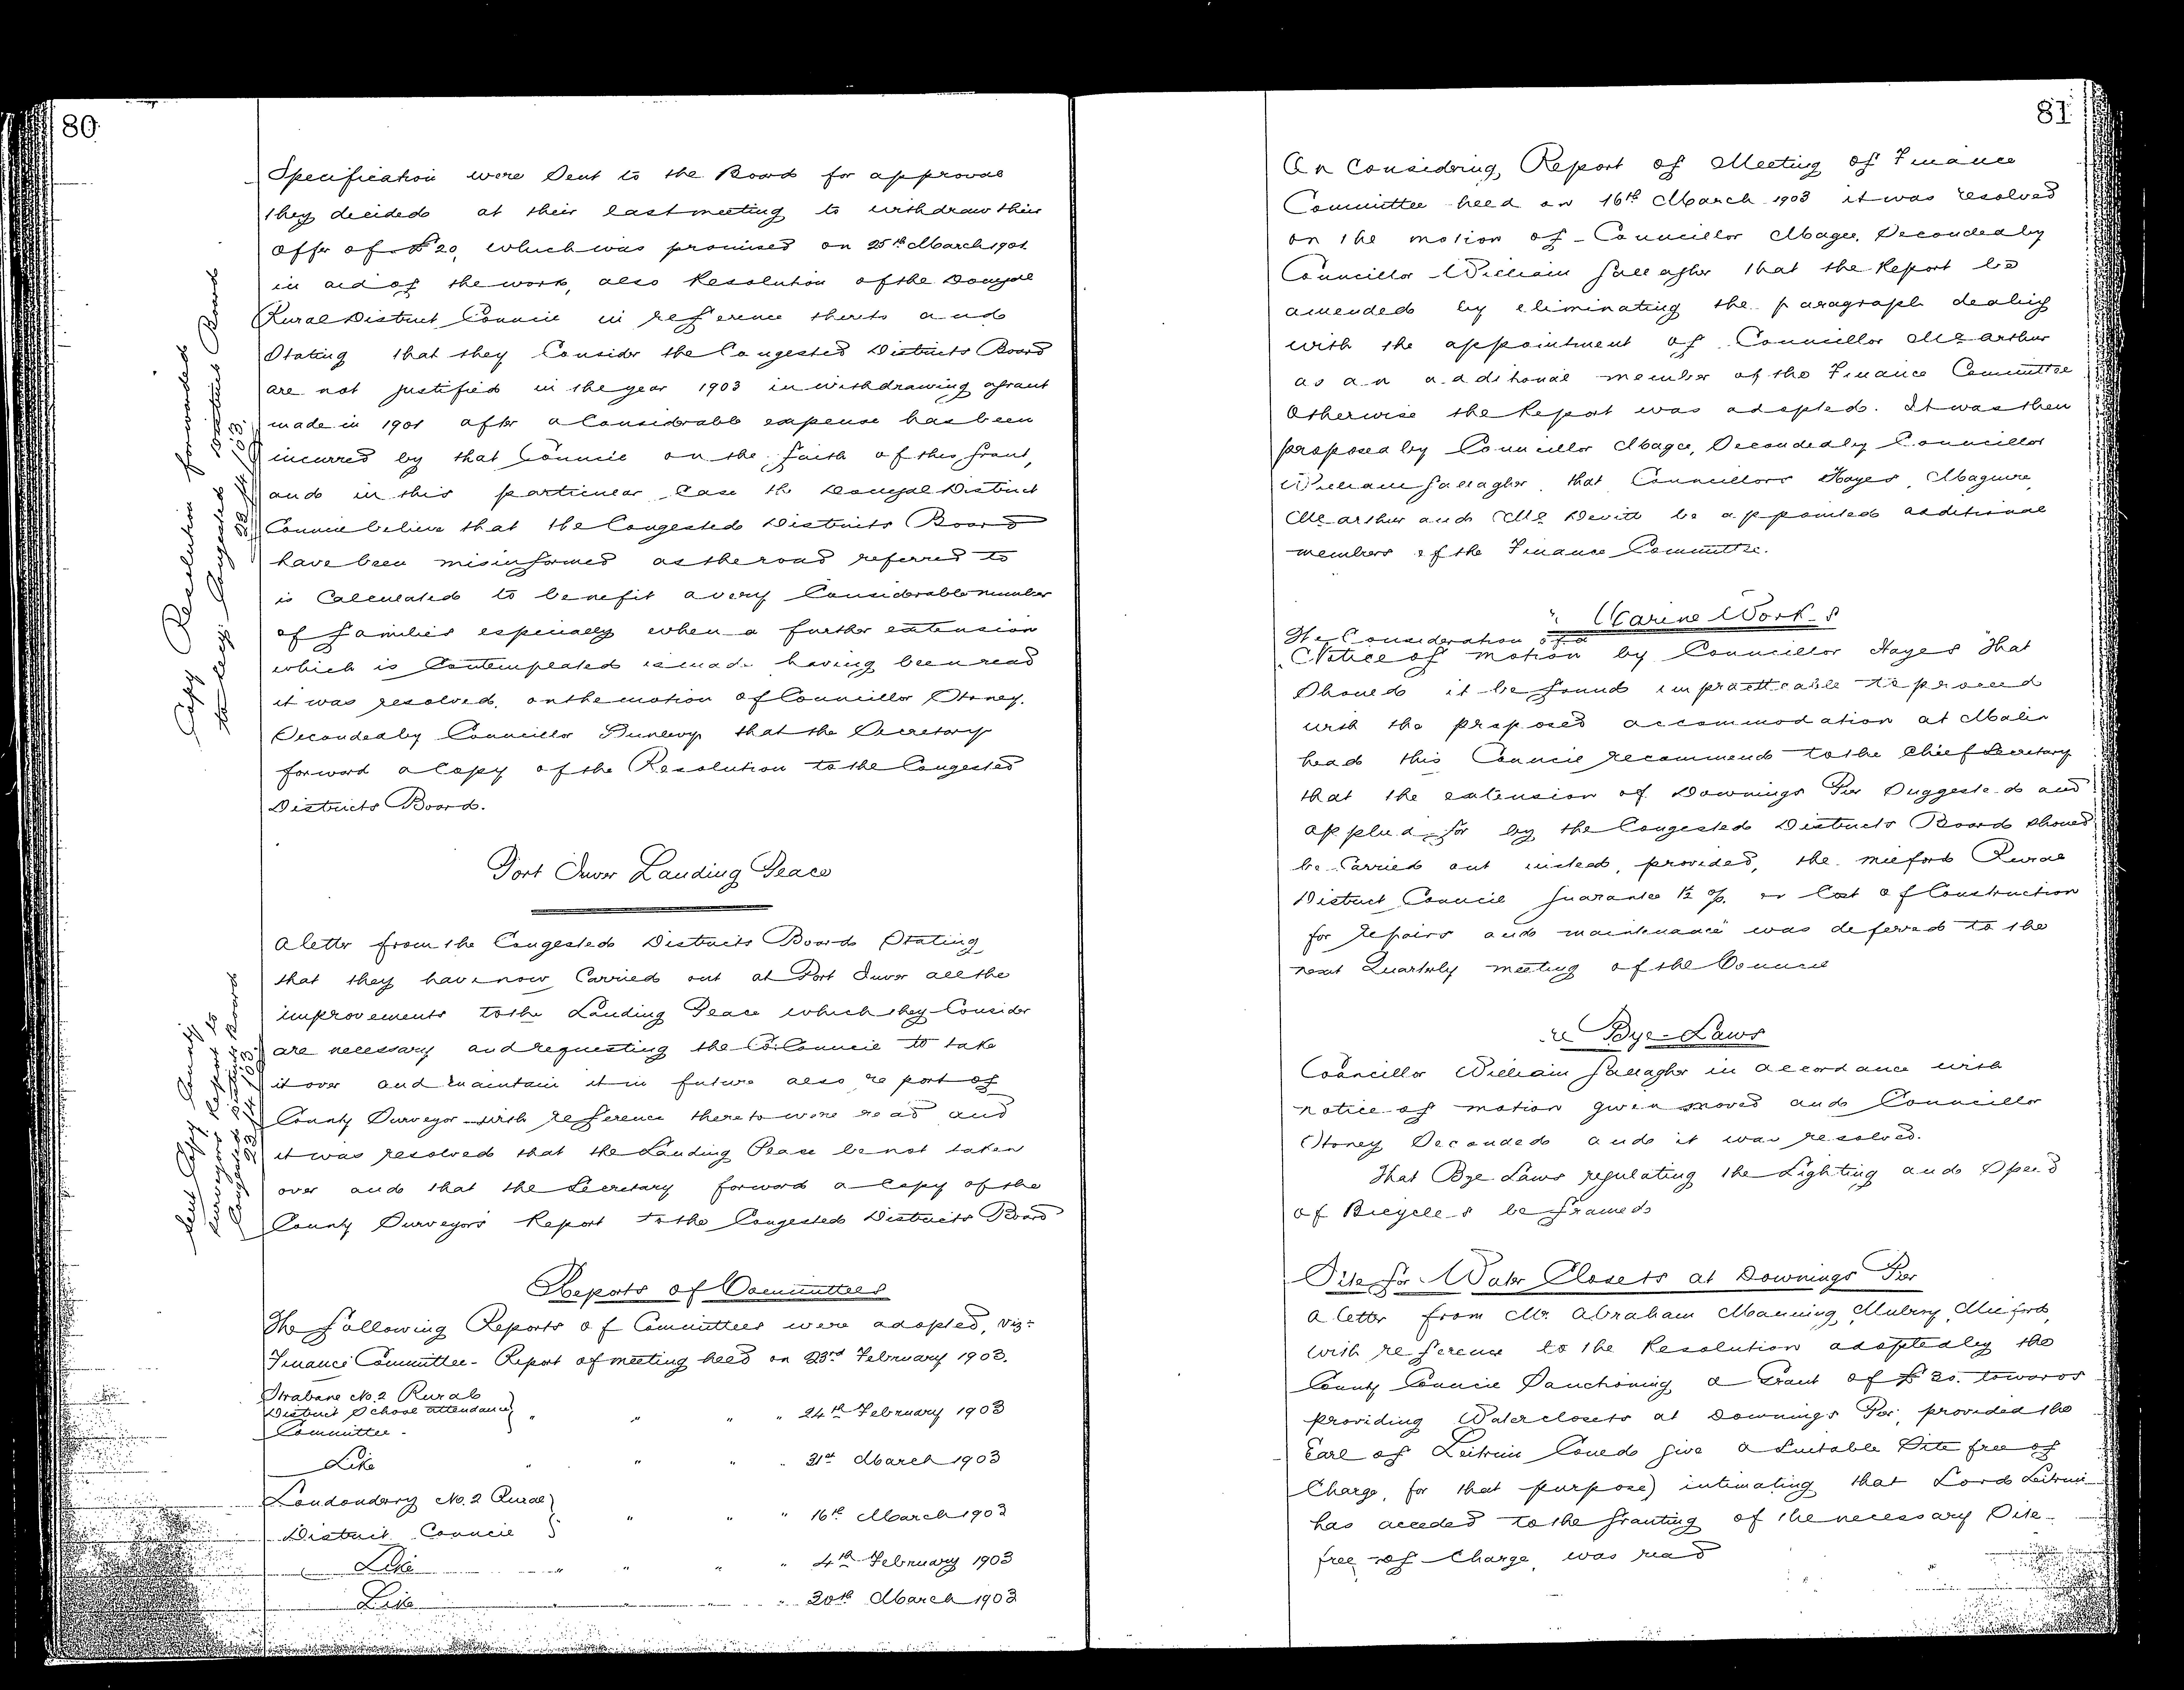 80
Specification were Sent to the Board for approval
they decided at their last meeting to withdraw their
offer of £20, which was promised on 25th March 1901
in aid of the work, also Resolution of the Donegal
Rural District Council in reference thereto and
Stating that they Consider the Congested Districts Board
are not justified in the year 1903 in withdrawing a grant
made in 1901 after a Considerable expense has been
incurred by that Council on the faith of this Grant,
and in this particular Case the Donegal District
Council believe that the Congested Districts Board
have been misinformed as the road referred to
is Calculated to benefit a very Considerable number
of families especially when a further extension
which is Contemplated is made having been read
it was resolved, on the motion of Councillor Stoney.
Seconded by Councillor Dunlevy that the Secretary
forward a Copy of the Resolution to the Congested
Districts Board.
Copy Resolution forwarded
to Congested Districts Board
22/4/03.
Port Inver Landing Place
A letter from the Congested Districts Board Stating
that they have now Carried out at Port Inver all the
improvements to the Landing Place which they Consider
are necessary and requesting the Co: Council to take
it over and maintain it in future also report of
County Surveyor with reference thereto were read and
it was resolved that the Landing Place be not taken
over and that the Secretary forward a Copy of the
County Surveyors Report to the Congested Districts Board
Sent Copy County
Surveyors Report to
Congested Districts Board
23/4/03.
Reports of Committees
The following Reports of Committees were adopted, viz:
Finance Committee - Report of meeting held on 23rd February 1903.
Strabane No. 2 Rural
District School attendance
Committee -
" " " " 24th February 1903
Like " " " " 31st March 1903
Londonderry No. 2 Rural
District Council
" " " 16th March 1903
Like " " " " 4th February 1903
Like " " " 20th March 1903
81
On Considering Report of Meeting of Finance
Committee held on 16th March 1903 it was resolved
on the motion of Councillor Magee, Seconded by
Councillor William Gallagher that the Report be
amended by eliminating the paragraph dealing
with the appointment of Councillor McArthur
as an additional member of the Finance Committee
Otherwise the Report was adopted. It was then
proposed by Councillor Magee, Seconded by Councillor
William Gallagher that Councillors Hayes, Maguire,
McArthur and McDevitt be appointed additional
members of the Finance Committee.
Marine Works
The Consideration of a
Notice of motion by Councillor Hayes That
Should it be found impracticable to proceed
with the proposed accommodation at Malin
head this Council recommend to the Chief Secretary
that the extension of Downings Pier Suggested and
applied for by the Congested Districts Board should
be Carried out instead, provided, the Milford Rural
District Council guarantee 1½ % on Cost of Construction
for repairs and maintenance was deferred to the
next Quarterly meeting of the Council
re Bye-Laws
Councillor William Gallagher in accordance with
notice of motion given moved and Councillor
Stoney Seconded and it was resolved.
That Bye Laws regulating the Lighting and Speed
of Bicycles be framed
Site for Water Closets at Downings Pier
A letter from Mr. Abraham Manning, Mulroy, Milford,
with reference to the Resolution adopted by the
County Council Sanctioning a Grant of £20. towards
providing Waterclosets at Downings Pier, provided the
Earl of Leitrim Could give a Suitable Site free of
Charge, for that purpose) intimating that Lord Leitrim
has acceded to the granting of the necessary Site
free of Charge, was read